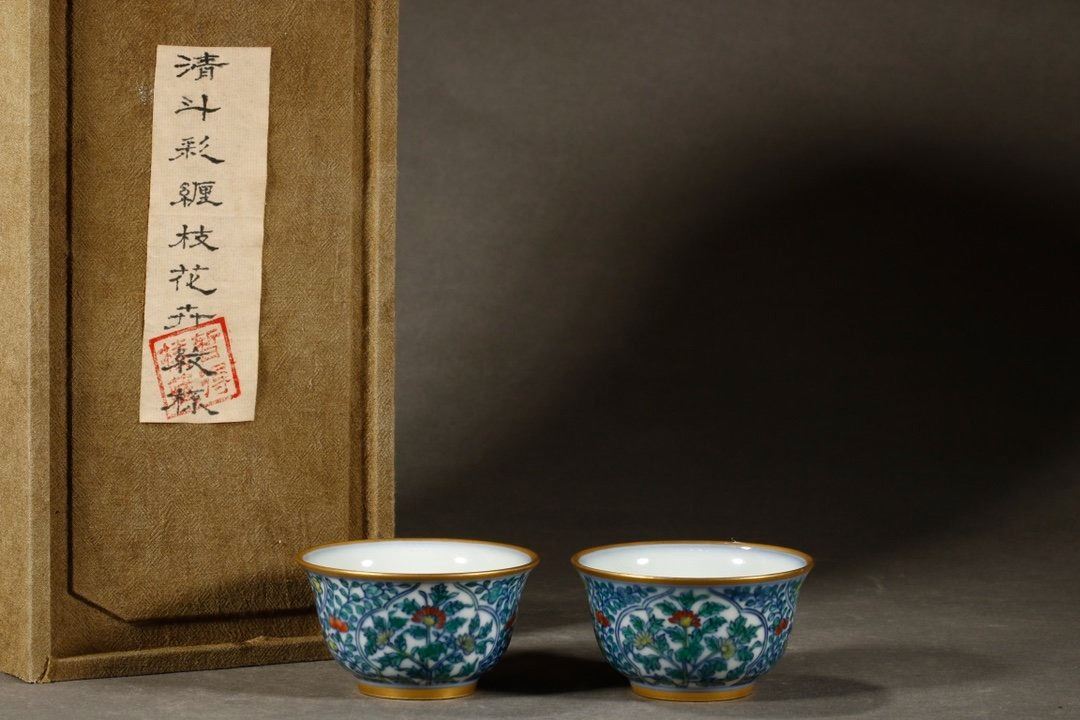 清斗彩缠枝花卉紋杯